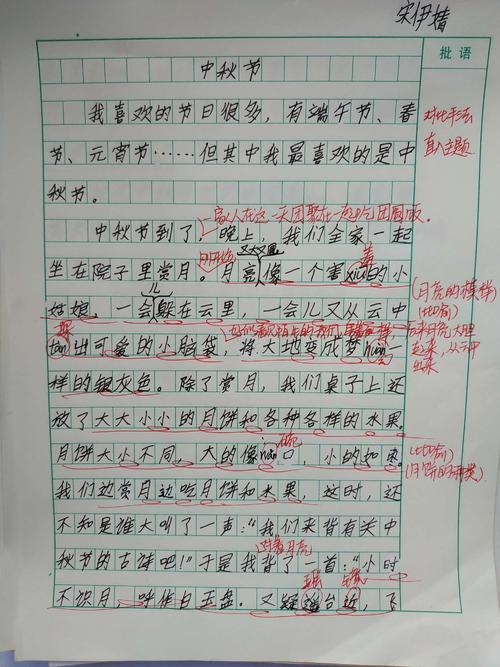 宋伊婧
批语
中秋节
我喜欢的节日很多，有端午节、春
对比手法
节、元宵节……但其中我最喜欢的是中
直入主题
秋节。
家人在这一天团聚在一起吃团圆饭。
中秋节到了，晚上，我们全家一起
又大又圆
羞
坐在院子里赏月。月亮像一个害xiū的小
儿
(月亮的模样)
姑娘，一会躲在云里，一会儿又从云中
(比喻)
探
tàn出可爱的小脑袋，将大地变成梦huàn
起来，从云中
出来
样的银灰色。除了赏月，我们桌子上还
放了大大小小的月饼和各种各样的水果。
碗
月饼大小不同，大的像wǎn口，小的如枣。
(比喻)
(月饼的种类)
我们边赏月边吃月饼和水果，这时，还
不知是谁大叫了一声：“我们来背有关中
对着月亮
秋节的古诗吧！”于是我背了一首：“小时
瑶 镜
不识月，呼作白玉盘。又疑遥台近，飞